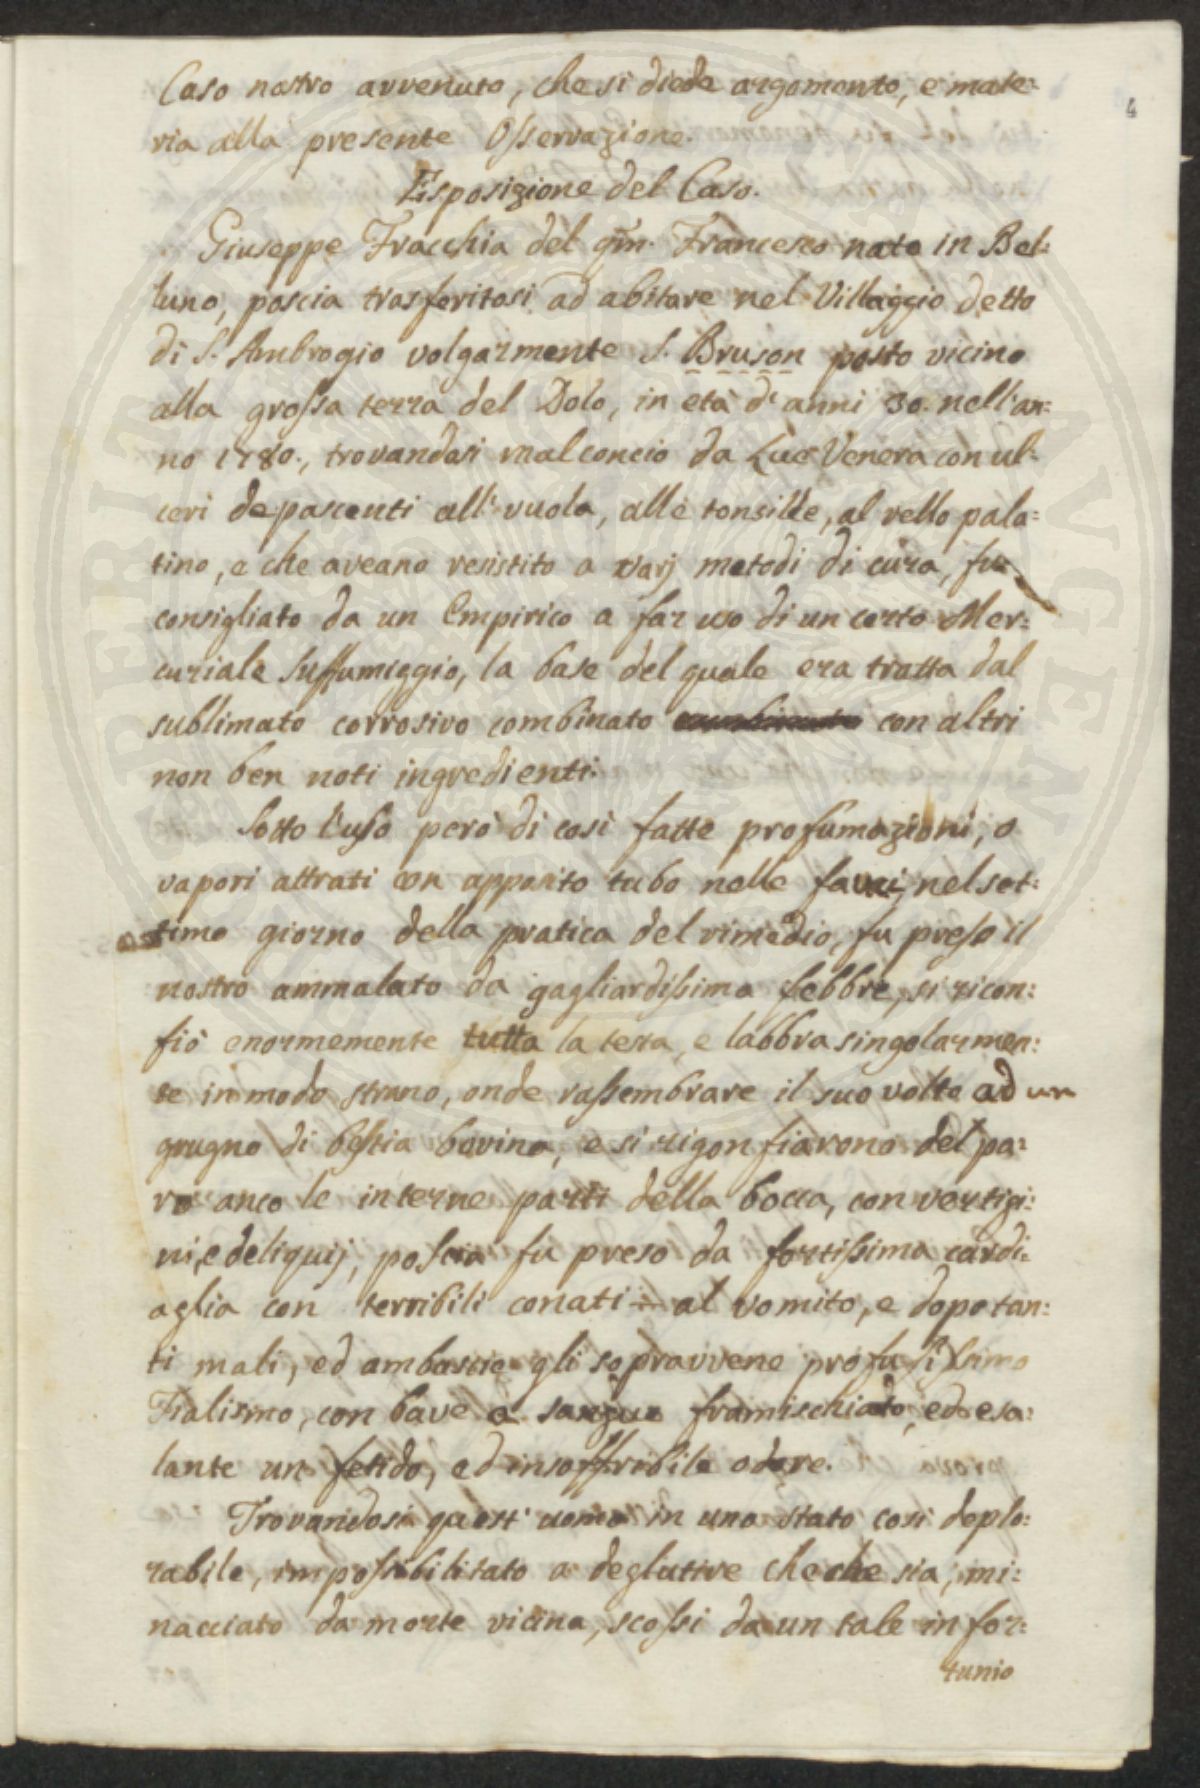 4
Caso nostro avvenuto, che si diede argomento, e mate:
ria alla presente Osservazione.
Esposizione del Caso.
Giuseppe Fracchia del qm. Francesco nato in Bel:
luno, poscia trasferitosi ad abitare nel Villaggio detto
di S. Ambrogio volgarmente S. Bruson posto vicino
alla grossa terra del Dolo, in età d'anni 30. nell'an:
no 1780., trovandosi malconcio da Lue Venera con ul:
ceri depascenti all'uvola, alle tonsille, al vello pala:
tino, e che aveano resistito a varj metodi di cura, fu
consigliato da un Empirico a far uso di un certo Mer:
curiale Suffumiggio, la base del quale era tratta dal
sublimato corrosivo combinato con altri
non ben noti ingredienti.
Sotto l'uso però di così fatte profumazioni, o
vapori attrati con apposito tubo nelle fauci, nel set:
timo giorno della pratica del rimedio, fu preso il
nostro ammalato da gagliardissima febbre, si ricon:
fiò enormemente tutta la testa, e labbra singolarmen:
te in modo strano, onde rassembrare il suo volto ad un
grugno di bestia bovina, e si rigonfiarono del pa:
ro anco le interne parti della bocca, con vertigi:
ni, e deliquij, poscia fu preso da fortissima cardi:
aglia con terribili conati al vomito, e dopo tan:
ti mali, ed ambascie gli sopravvene profusissimo
Tialismo, con bave a sangue framischiato, ed esa:
lante un fetido, ed insoffribile odore.
Trovandosi quest'uomo in uno stato così deplo:
rabile, impossibilitato a deglutire che che sia, mi:
nacciato da morte vicina, scossi da un tale infor:
tunio